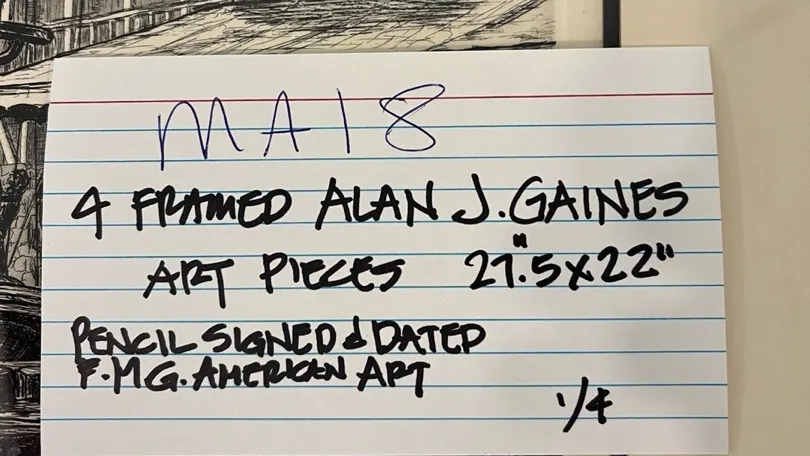 MA18
4 FRAMED ALAN J. GAINES
ART PIECES 27.5"x22"
PENCIL SIGNED & DATED
F.MG. AMERICAN ART
1/4